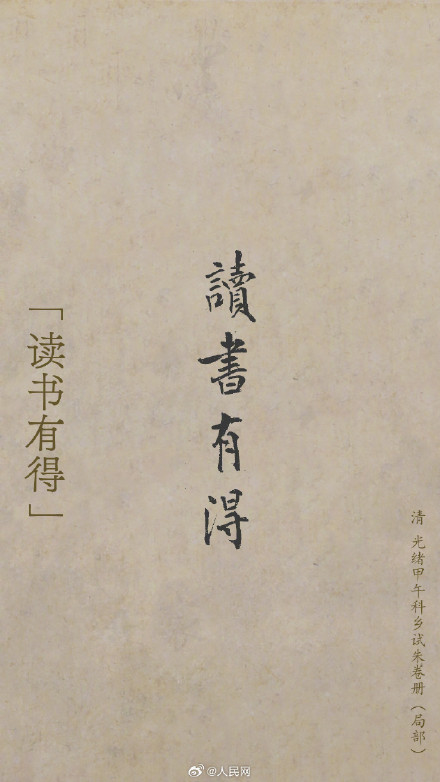 讀書有得
「读书有得」
清 光绪甲午科乡试朱卷册（局部）
@人民网